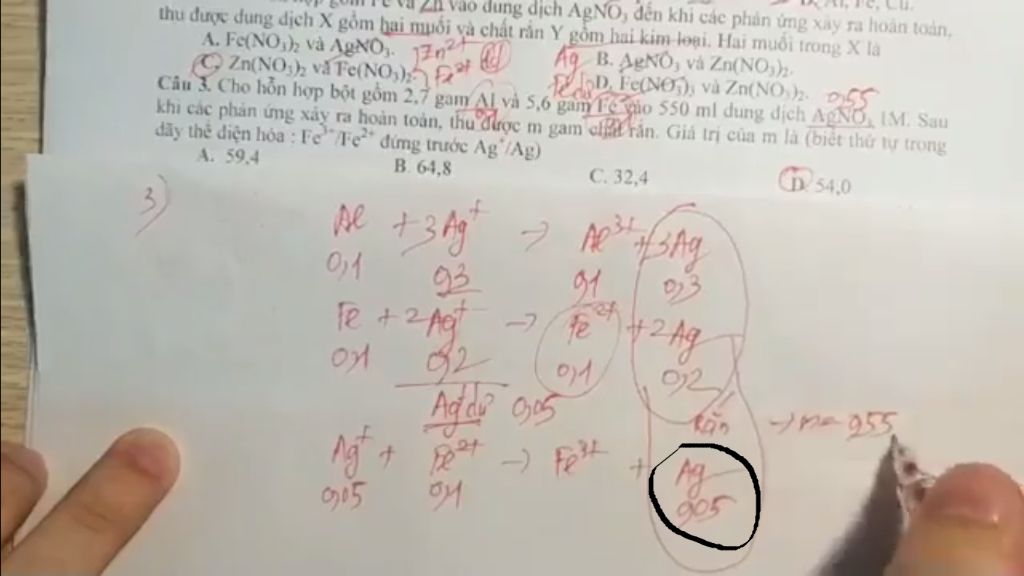 gồm Fe và Zn vào dung dịch AgNO₃ đến khi các phản ứng xảy ra hoàn toàn,
thu được dung dịch X gồm hai muối và chất rắn Y gồm hai kim loại. Hai muối trong X là
A. Fe(NO₃)₂ và AgNO₃. B. AgNO₃ và Zn(NO₃)₂.
Zn²⁺ Ag
C. Zn(NO₃)₂ và Fe(NO₃)₂. D. Fe(NO₃)₃ và Zn(NO₃)₂.
Fe²⁺ Fe dư 0,55
Câu 3. Cho hỗn hợp bột gồm 2,7 gam Al và 5,6 gam Fe vào 550 ml dung dịch AgNO₃ 1M. Sau
khi các phản ứng xảy ra hoàn toàn, thu được m gam chất rắn. Giá trị của m là (biết thứ tự trong
dãy thế điện hóa : Fe³⁺/Fe²⁺ đứng trước Ag⁺/Ag)
A. 59,4 B. 64,8 C. 32,4 D. 54,0
3)
Al + 3Ag⁺ → Al³⁺ + 3Ag
0,1 0,3 0,1 0,3
Fe + 2Ag⁺ → Fe²⁺ + 2Ag
0,1 0,2 0,1 0,2
Ag⁺ dư 0,05
Rắn → n = 0,55
Ag⁺ + Fe²⁺ → Fe³⁺ + Ag
0,05 0,1 0,05